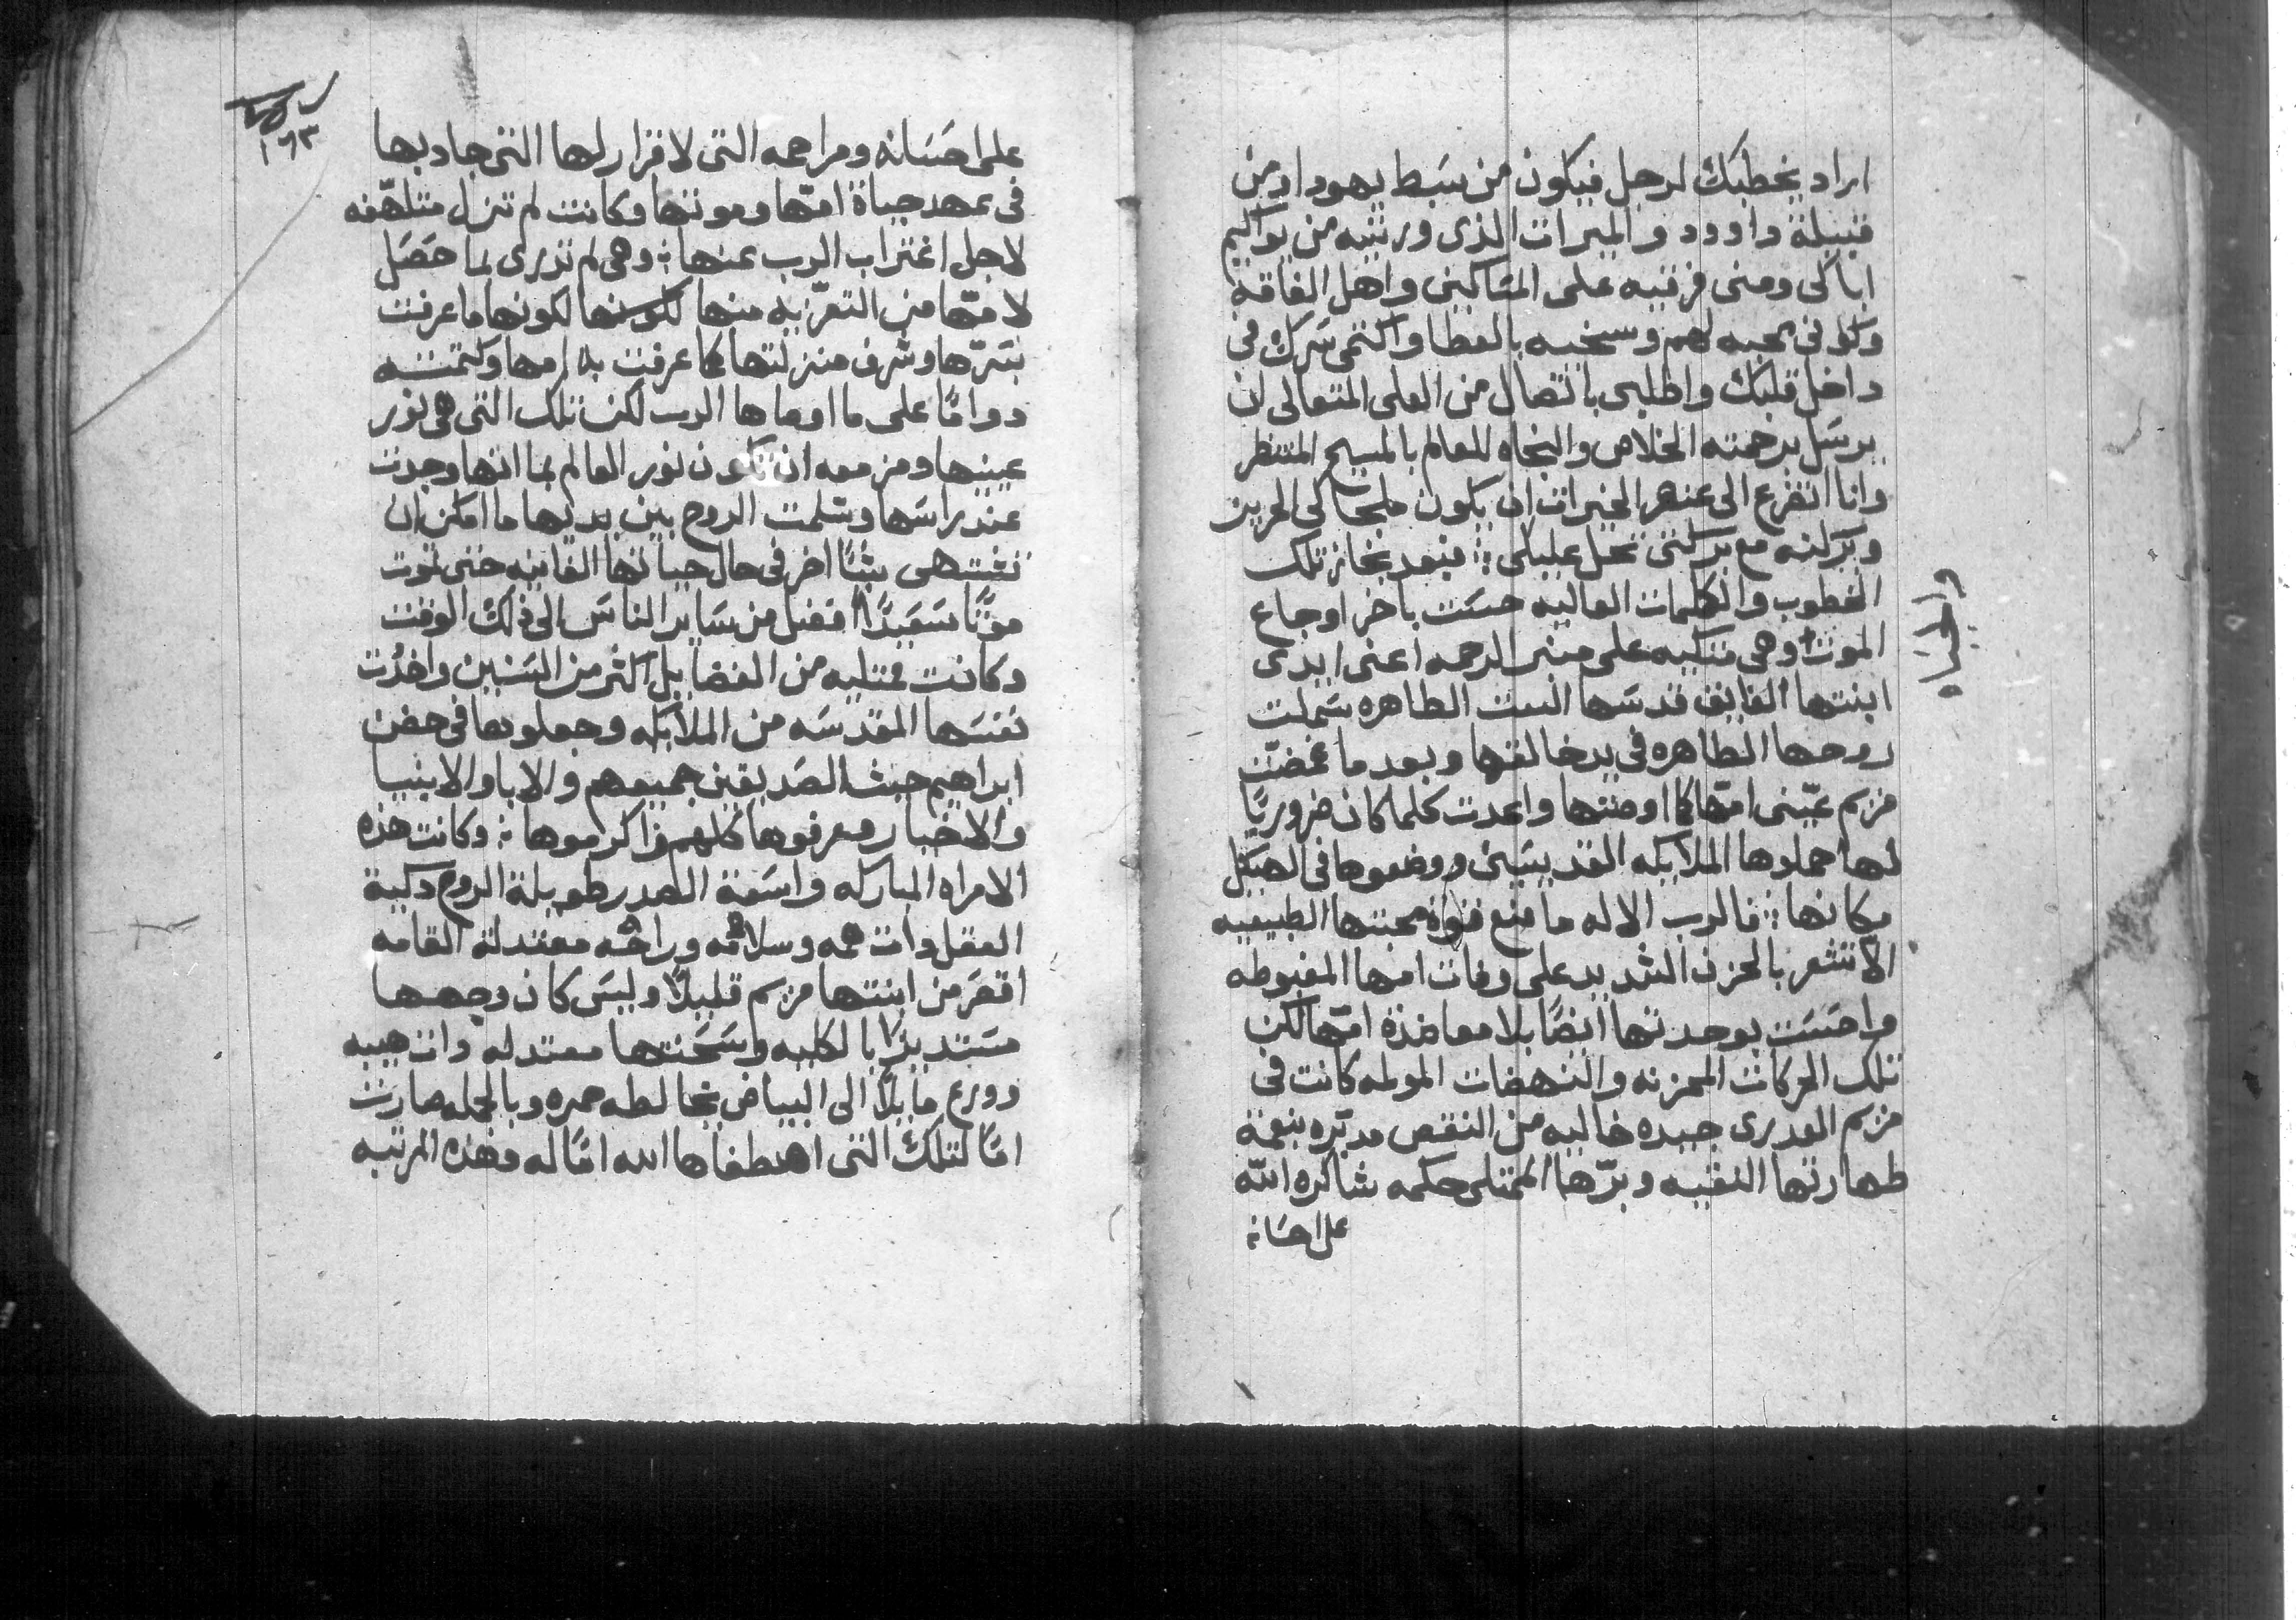 اراد يخطبك لرجل فيكون من سَبط يهودا ومن
قبيلة داوود والميرات الذى ورثتيه من يواكيم
اباكى ومنى فرقيه على المسَاكين واهل الفاقه
وكونى محبه لهم وسخيه بالعطا واكتمى سَرك فى
داخل قلبك واطلبى باتصال من العلى المتعالى ان
يرسَل برحمته الخلاص والنجاه للعالم بالمسيح المنتظر
وانا اتضرع الى عنصر الخيرات ان يكون ملجاكى الحريز
وبركته مع بركتى تحل عليكى ؛ فبعد نجاز تلك
الخطوب والكلمات العاليه حسَت باخر اوجاع
الموت وهى متكيه على منبر الرحمه اعنى ايدى
والحياه
ابنتها الفايق قدسَها البنت الطاهره سَملت
روحها الطاهره فى يد خالقها وبعد ما غمضَت
مريم عيَنى امّها كما اوصتها واعدت كلما كان ضروريًا
لها حملوها الملايكه القديسَين ووضعوها فى الهيكل
مكانها ؛ فالرب الاله ما منع قوة محبتها الطبيعيه
الا تشعر بالحزن الشديد على وفات امها المغبوطه
واحسَت بوحدتها ايضًا بلا معاضدة امّها لكن
تلك الحركات المحزنه والنهضات المولمه كانت فى
مريم العدرى جيده خاليه من النقص مدبّره بنعمة
طهارتها النقيه وبرّها الممتلى حكمه شاكره اللّه
على احسَانه
١٦٣
على احسَانه ومراحمه التى لا قرار لها التى جاد بها
فى عهد حياة امّها وموتها وكانت لم تزل متلهّفه
لاجل اغتراب الرب عنها ؛ وهى لم تدرى لما حَصَل
لامّها من التعزّيه منها لكونها لكونها ما عرفت
بسَرّها وشرف منزلتها كما عرفت به امها وكتمته
دوامًا على ما اوصاها الرب لكن تلك التى هى نور
عينيها ومزمعه ان تكون نور العالم بما انها وجدت
عند راسَها وسَلمت الروح بين يديها ما امكن ان
تشتهى شيًا اخر فى حال حياتها الفانيه حتى تموت
موتًا سَعَيدًا افضل من سَاير الناسَ الى ذلك الوقت
وكانت ممتليه من الفضايل اكثر من السَنين واخدُت
نفسَها المقدسَه من الملايكه وجعلوها فى حضن
ابراهيم حيث الصَديقين جميعهم والابا والانبيا
والاخيار وعرفوها كلهم واكرموها ؛ وكانت هذه
الامراه المباركه واسَعة الصدر طويلة الروح دكية
العقل دات همه وسلامَه وراحَه معتدلة القامه
اقصَر من ابنتها مريم قليلًا وليسَ كان وجهها
مسَتديرًا بالكليه وسَحنتها معتدله دات هيبه
وورع مايلًا الى البياض يخالطه حمره وبالجمله صارت
امًا لتلك التى اصطفاها الله امًا له وهذه المرتبه